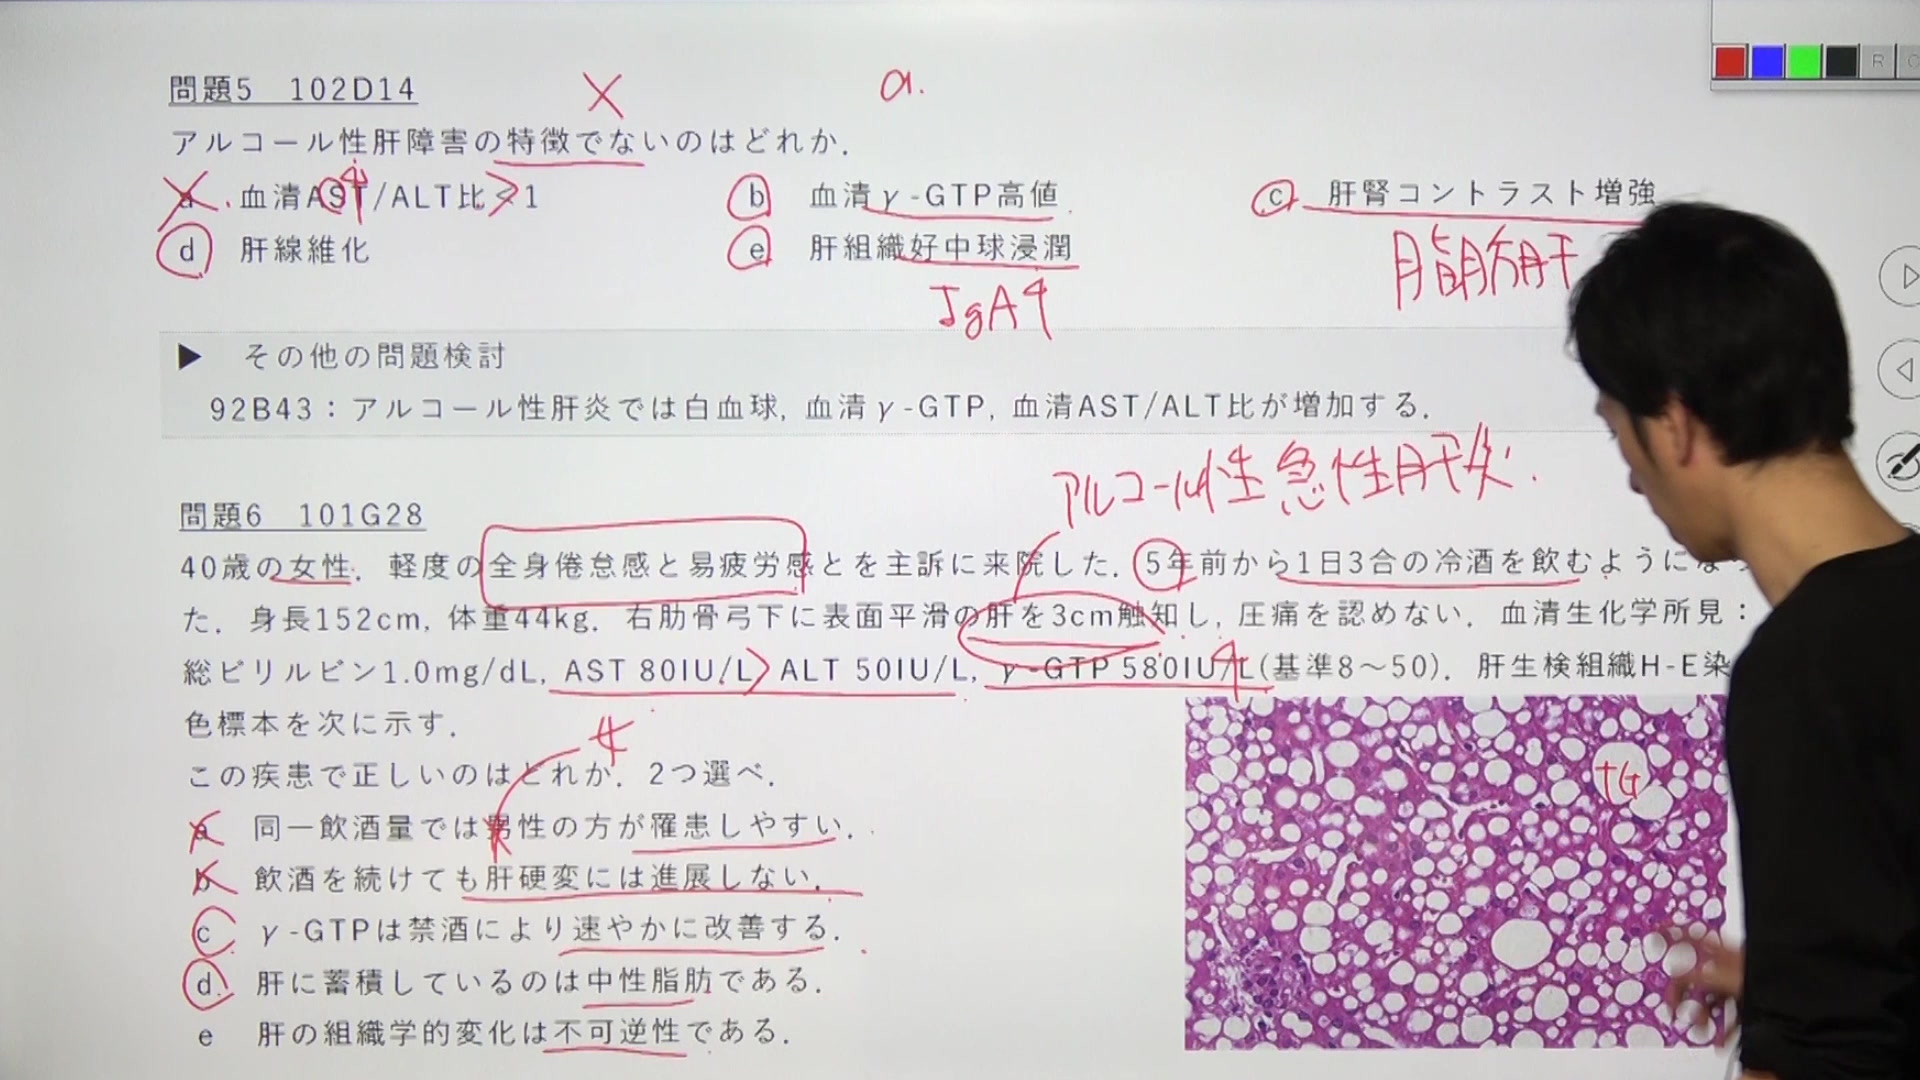 問題5 102D14
× a.
アルコール性肝障害の特徴でないのはどれか.
a. 血清AST/ALT比<1 b 血清γ-GTP高値 c 肝腎コントラスト増強
d 肝線維化 e 肝組織好中球浸潤
脂肪肝
IgA↑
▶ その他の問題検討
92B43：アルコール性肝炎では白血球, 血清γ-GTP, 血清AST/ALT比が増加する.
アルコール性急性肝炎.
問題6 101G28
40歳の女性. 軽度の全身倦怠感と易疲労感とを主訴に来院した. 5年前から1日3合の冷酒を飲むように
た. 身長152cm, 体重44kg. 右肋骨弓下に表面平滑の肝を3cm触知し, 圧痛を認めない. 血清生化学所見：
総ビリルビン1.0mg/dL, AST 80IU/L > ALT 50IU/L, γ-GTP 580IU/L(基準8～50). 肝生検組織H-E染
色標本を次に示す.
女
この疾患で正しいのはどれか. 2つ選べ.
TG
a 同一飲酒量では男性の方が罹患しやすい.
b 飲酒を続けても肝硬変には進展しない.
c γ-GTPは禁酒により速やかに改善する.
d. 肝に蓄積しているのは中性脂肪である.
e 肝の組織学的変化は不可逆性である.
R